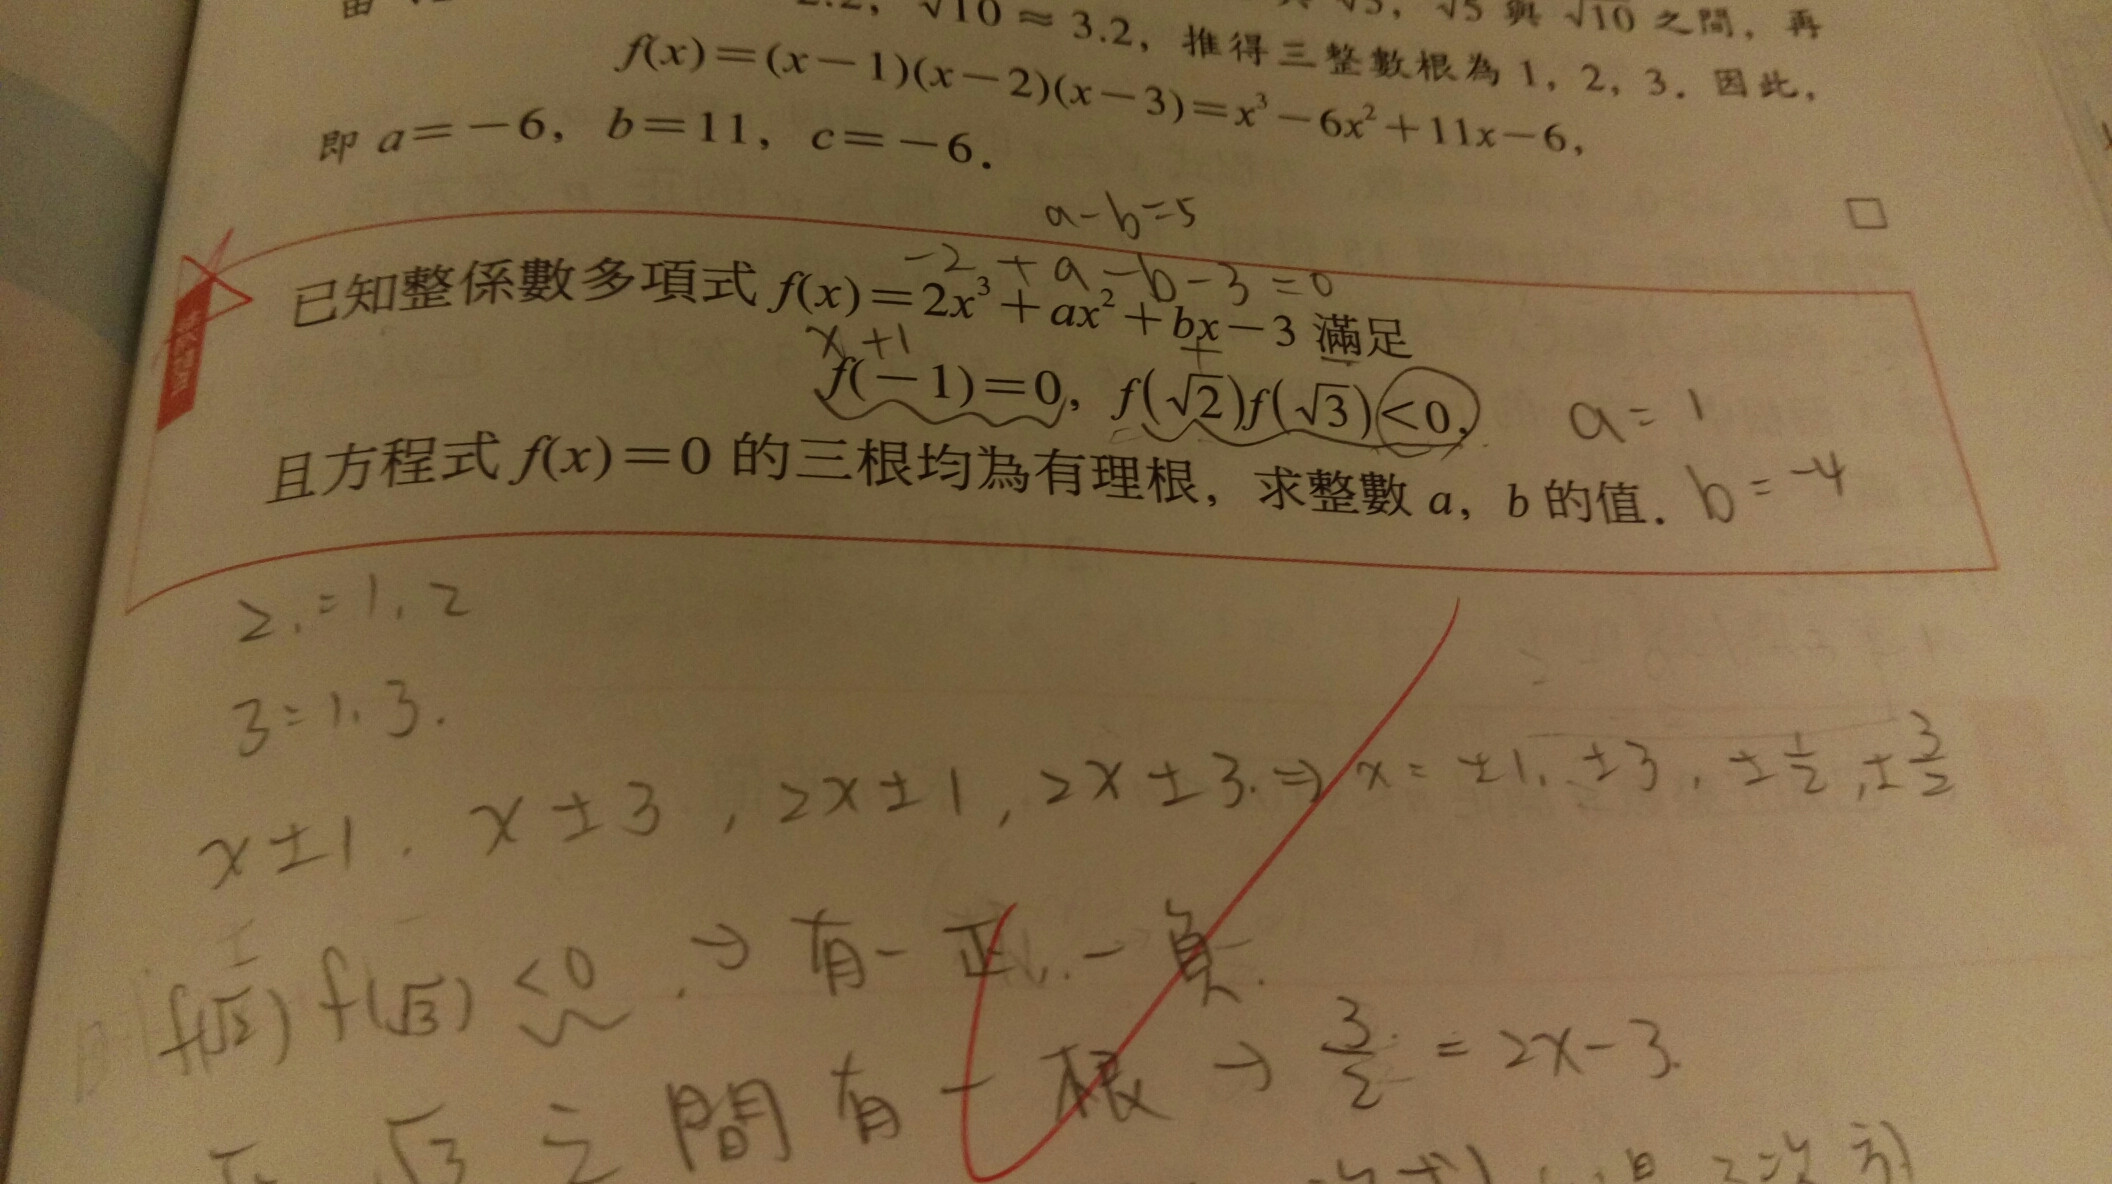 2.2, √10 ≈ 3.2, 推得三整數根為 1, 2, 3. 因此,
√5 與 √10 之間, 再
f(x)=(x−1)(x−2)(x−3)=x³−6x²+11x−6,
即 a=−6, b=11, c=−6.
a-b=5
-2+a-b-3=0
已知整係數多項式 f(x)=2x³+ax²+bx−3 滿足
x+1
f(−1)=0, f(√2)f(√3)<0,
a=1
且方程式 f(x)=0 的三根均為有理根, 求整數 a, b 的值.
b=-4
2.=1.2
3=1.3.
x±1. x±3, 2x±1, 2x±3.⇒x=±1.±3,±1/2,±3/2
f(√2) f(√3)<0.→有一正.一負.
√3 之間有一根→3/2=2x-3.